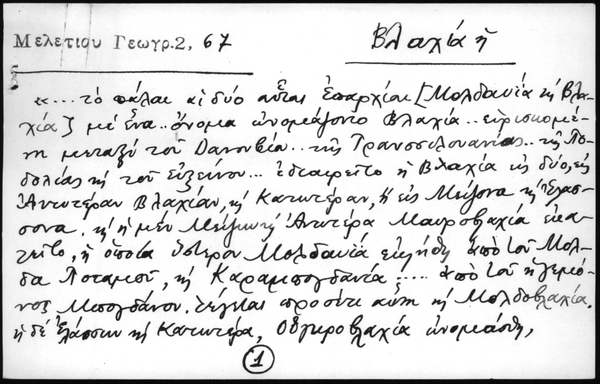 Μελετίου Γεωγρ. 2, 67
Βλαχία ἡ
«... τὸ πάλαι αἱ δύο αὗται ἐπαρχίαι [Μολδαυία κὴ Βλα-
χία] μὲ ἕνα .. ὄνομα ὠνομάζοντο Βλαχία .. εὑρισκομέ-
νη μεταξὺ τοῦ Δανουβίου .. τῆς Τρανσυλουανίας .. τῆς Πο-
δολίας κὴ τοῦ Εὐξείνου ... ἐδιαιρεῖτο ἡ Βλαχία εἰς δύο, εἰς
Ἀνωτέραν Βλαχίαν, κὴ Κατωτέραν, ἢ εἰς Μείζονα κὴ Ἐλάσ-
σονα. κὴ ἡ μὲν Μείζων κὴ Ἀνωτέρα Μαυροβλαχία ἐκα-
λεῖτο, ἡ ὁποία ὕστερον Μολδαυία ἐκλήθη ἀπὸ τοῦ Μολ-
δα Ποταμοῦ, κὴ Καραμπογδανία .... ἀπὸ τοῦ ἡγεμό-
νος Μπογδάνου. λέγεται προσέτι αὕτη κὴ Μολδοβλαχία.
ἡ δὲ Ἐλάσσων κὴ Κατωτέρα, Οὑγκροβλαχία ὠνομάσθη,
1